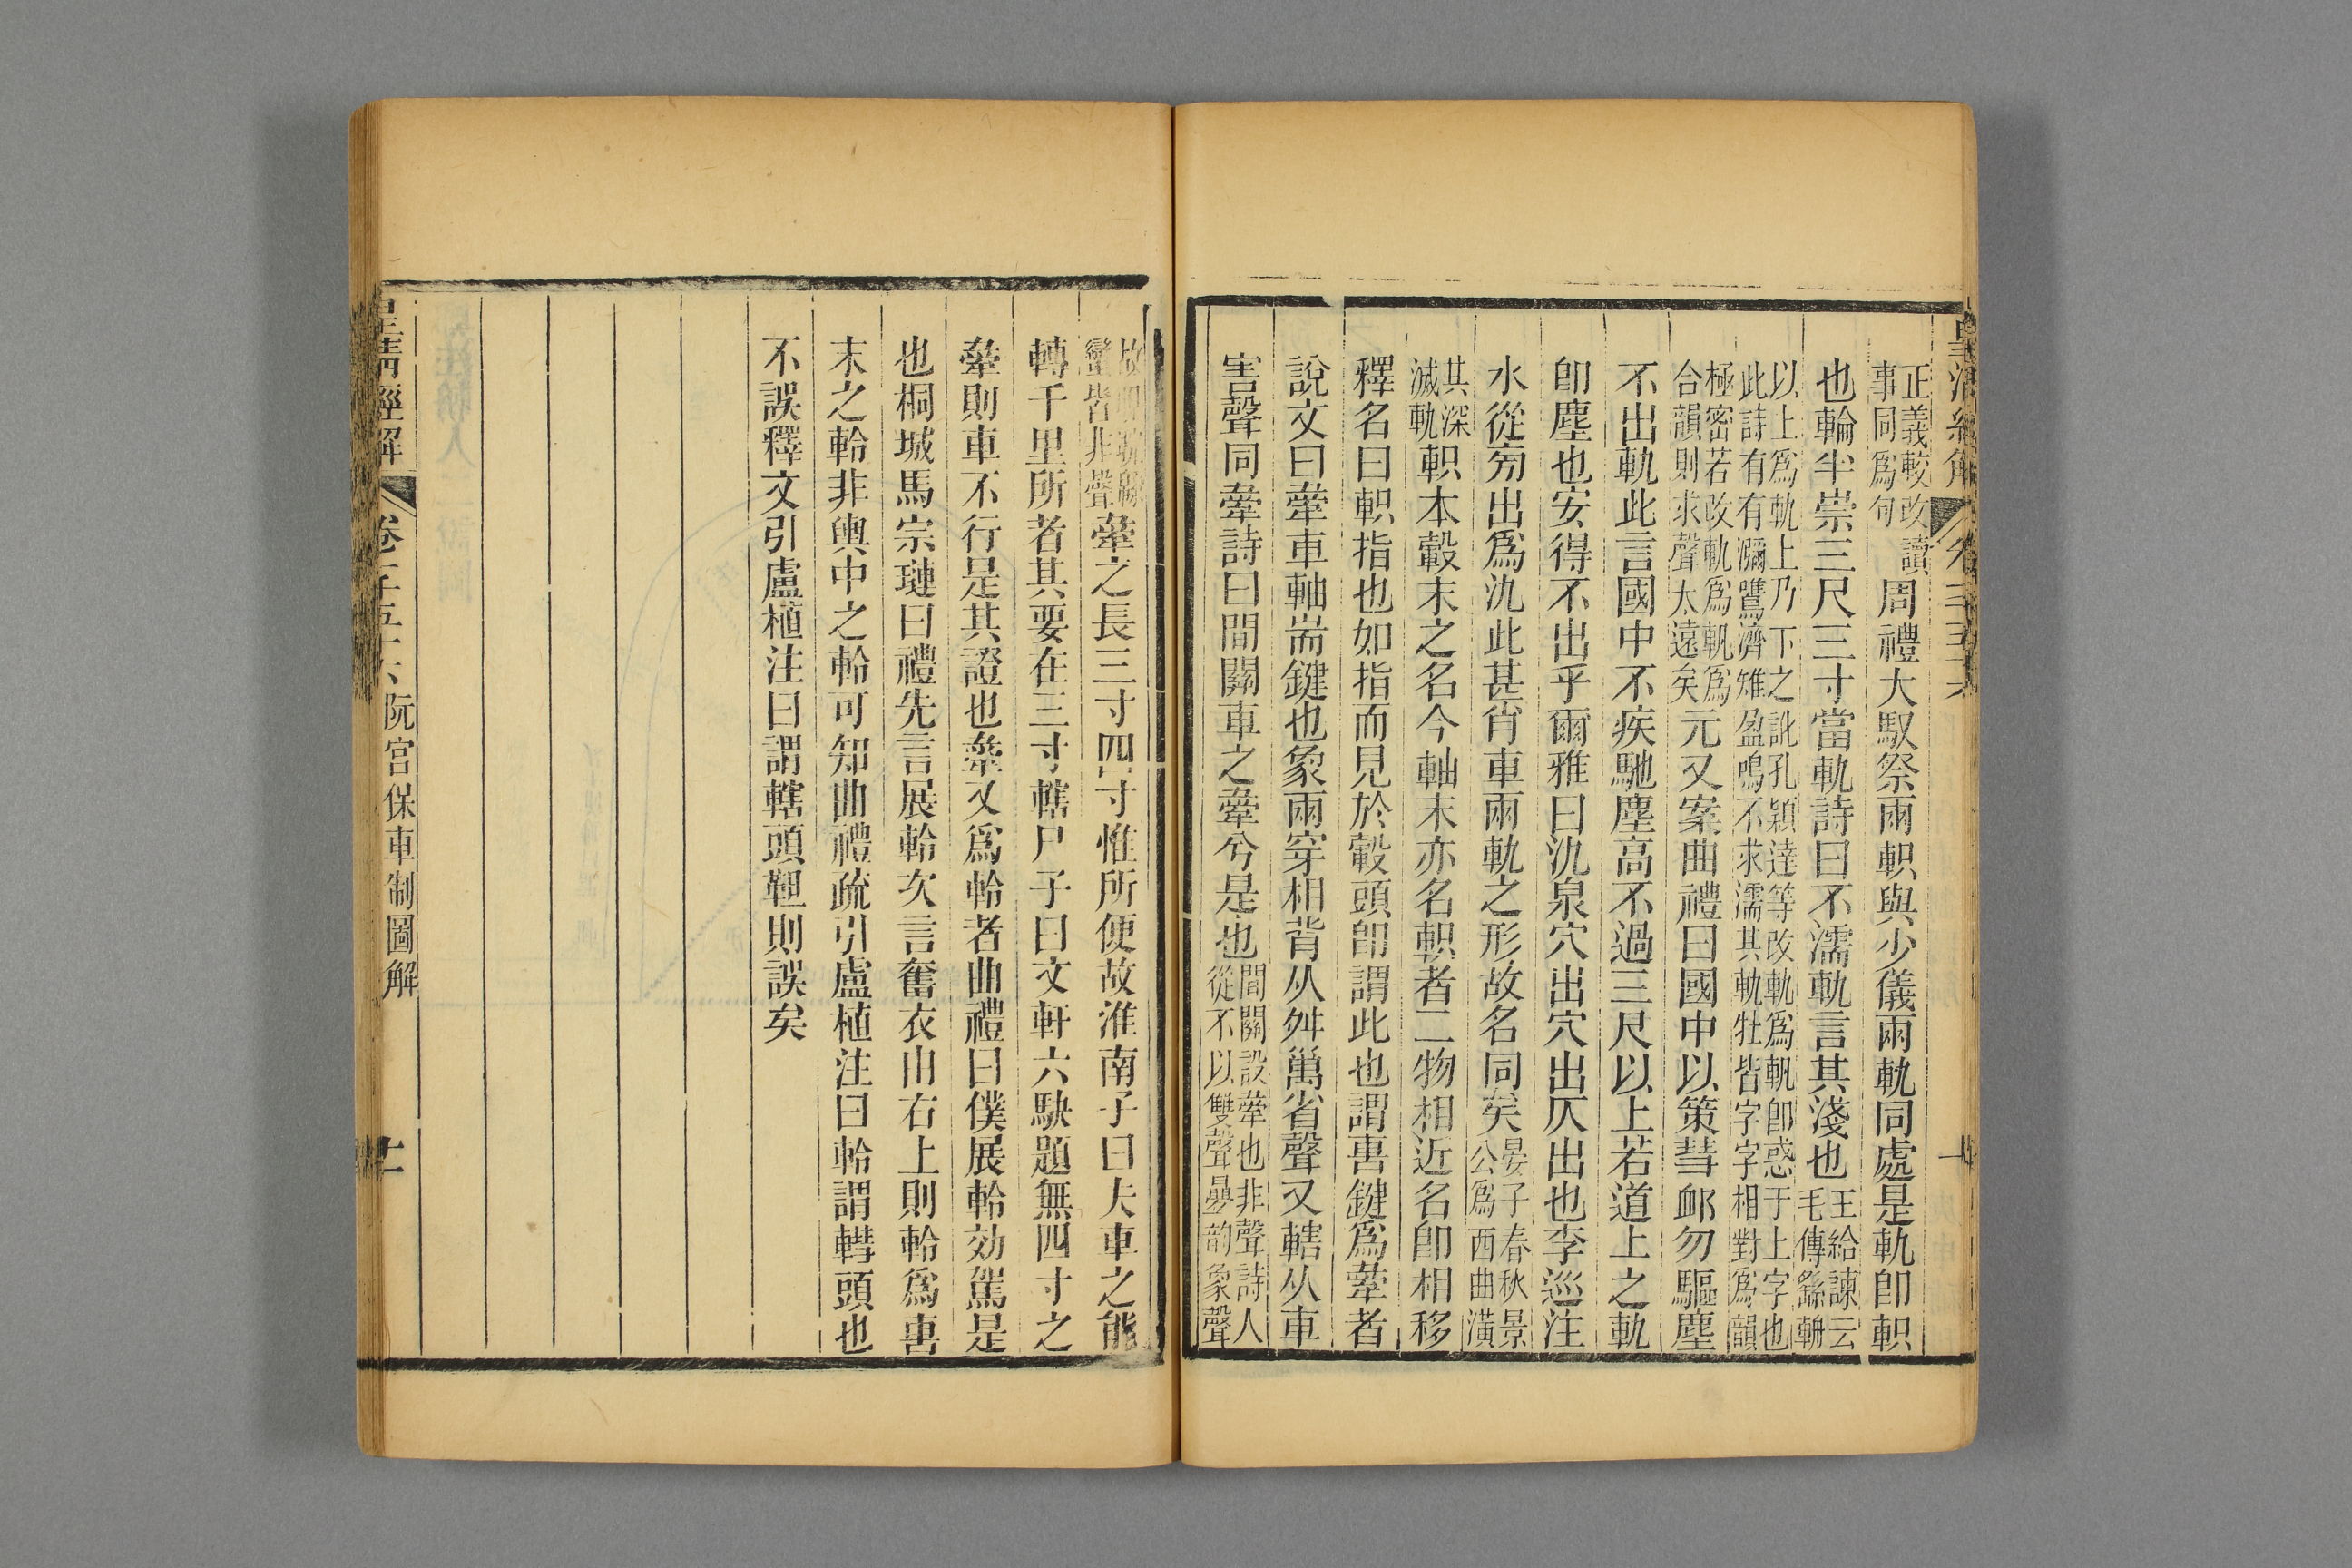 正義較改讀
事同爲句
周禮大馭祭兩軹與少儀兩軌同處是軌卽軹
也輪半崇三尺三寸當軌詩曰不濡軌言其淺也
王給諫云
毛傳繇輈
以上爲軌上乃下之訛孔穎達等改軌爲軓卽惑于上字也
此詩有有瀰鷕濟雉盈鳴不求濡其軌牡皆字字相對爲韻
極密若改軌爲軓爲
合韻則求聲太遠矣
元又案曲禮曰國中以策彗卹勿驅塵
不出軌此言國中不疾馳塵高不過三尺以上若道上之軌
卽塵也安得不出乎爾雅曰氿泉穴出穴出仄出也李巡注
水從旁出爲氿此甚肖車兩軌之形故名同矣
晏子春秋景
公爲西曲潢
其深
滅軌
軹本轂末之名今軸末亦名軹者二物相近名卽相移
釋名曰軹指也如指而見於轂頭卽謂此也謂軎鍵爲舝者
說文曰舝車軸耑鍵也象兩穿相背从舛萬省聲又轄从車
害聲同舝詩曰間關車之舝兮是也
間關設舝也非聲詩人
從不以雙聲疊韵象聲
故緜
蠻皆非聲
舝之長三寸四寸惟所便故淮南子曰夫車之能
轉千里所者其要在三寸轄尸子曰文軒六駃題無四寸之
舝則車不行是其證也舝又爲軨者曲禮曰僕展軨効駕是
也桐城馬宗璉曰禮先言展軨次言奮衣由右上則軨爲軎
末之軨非輿中之軨可知曲禮疏引盧植注曰軨謂轊頭也
不誤釋文引盧植注曰謂轄頭靼則誤矣
皇清經解
卷
阮宫保車制圖解